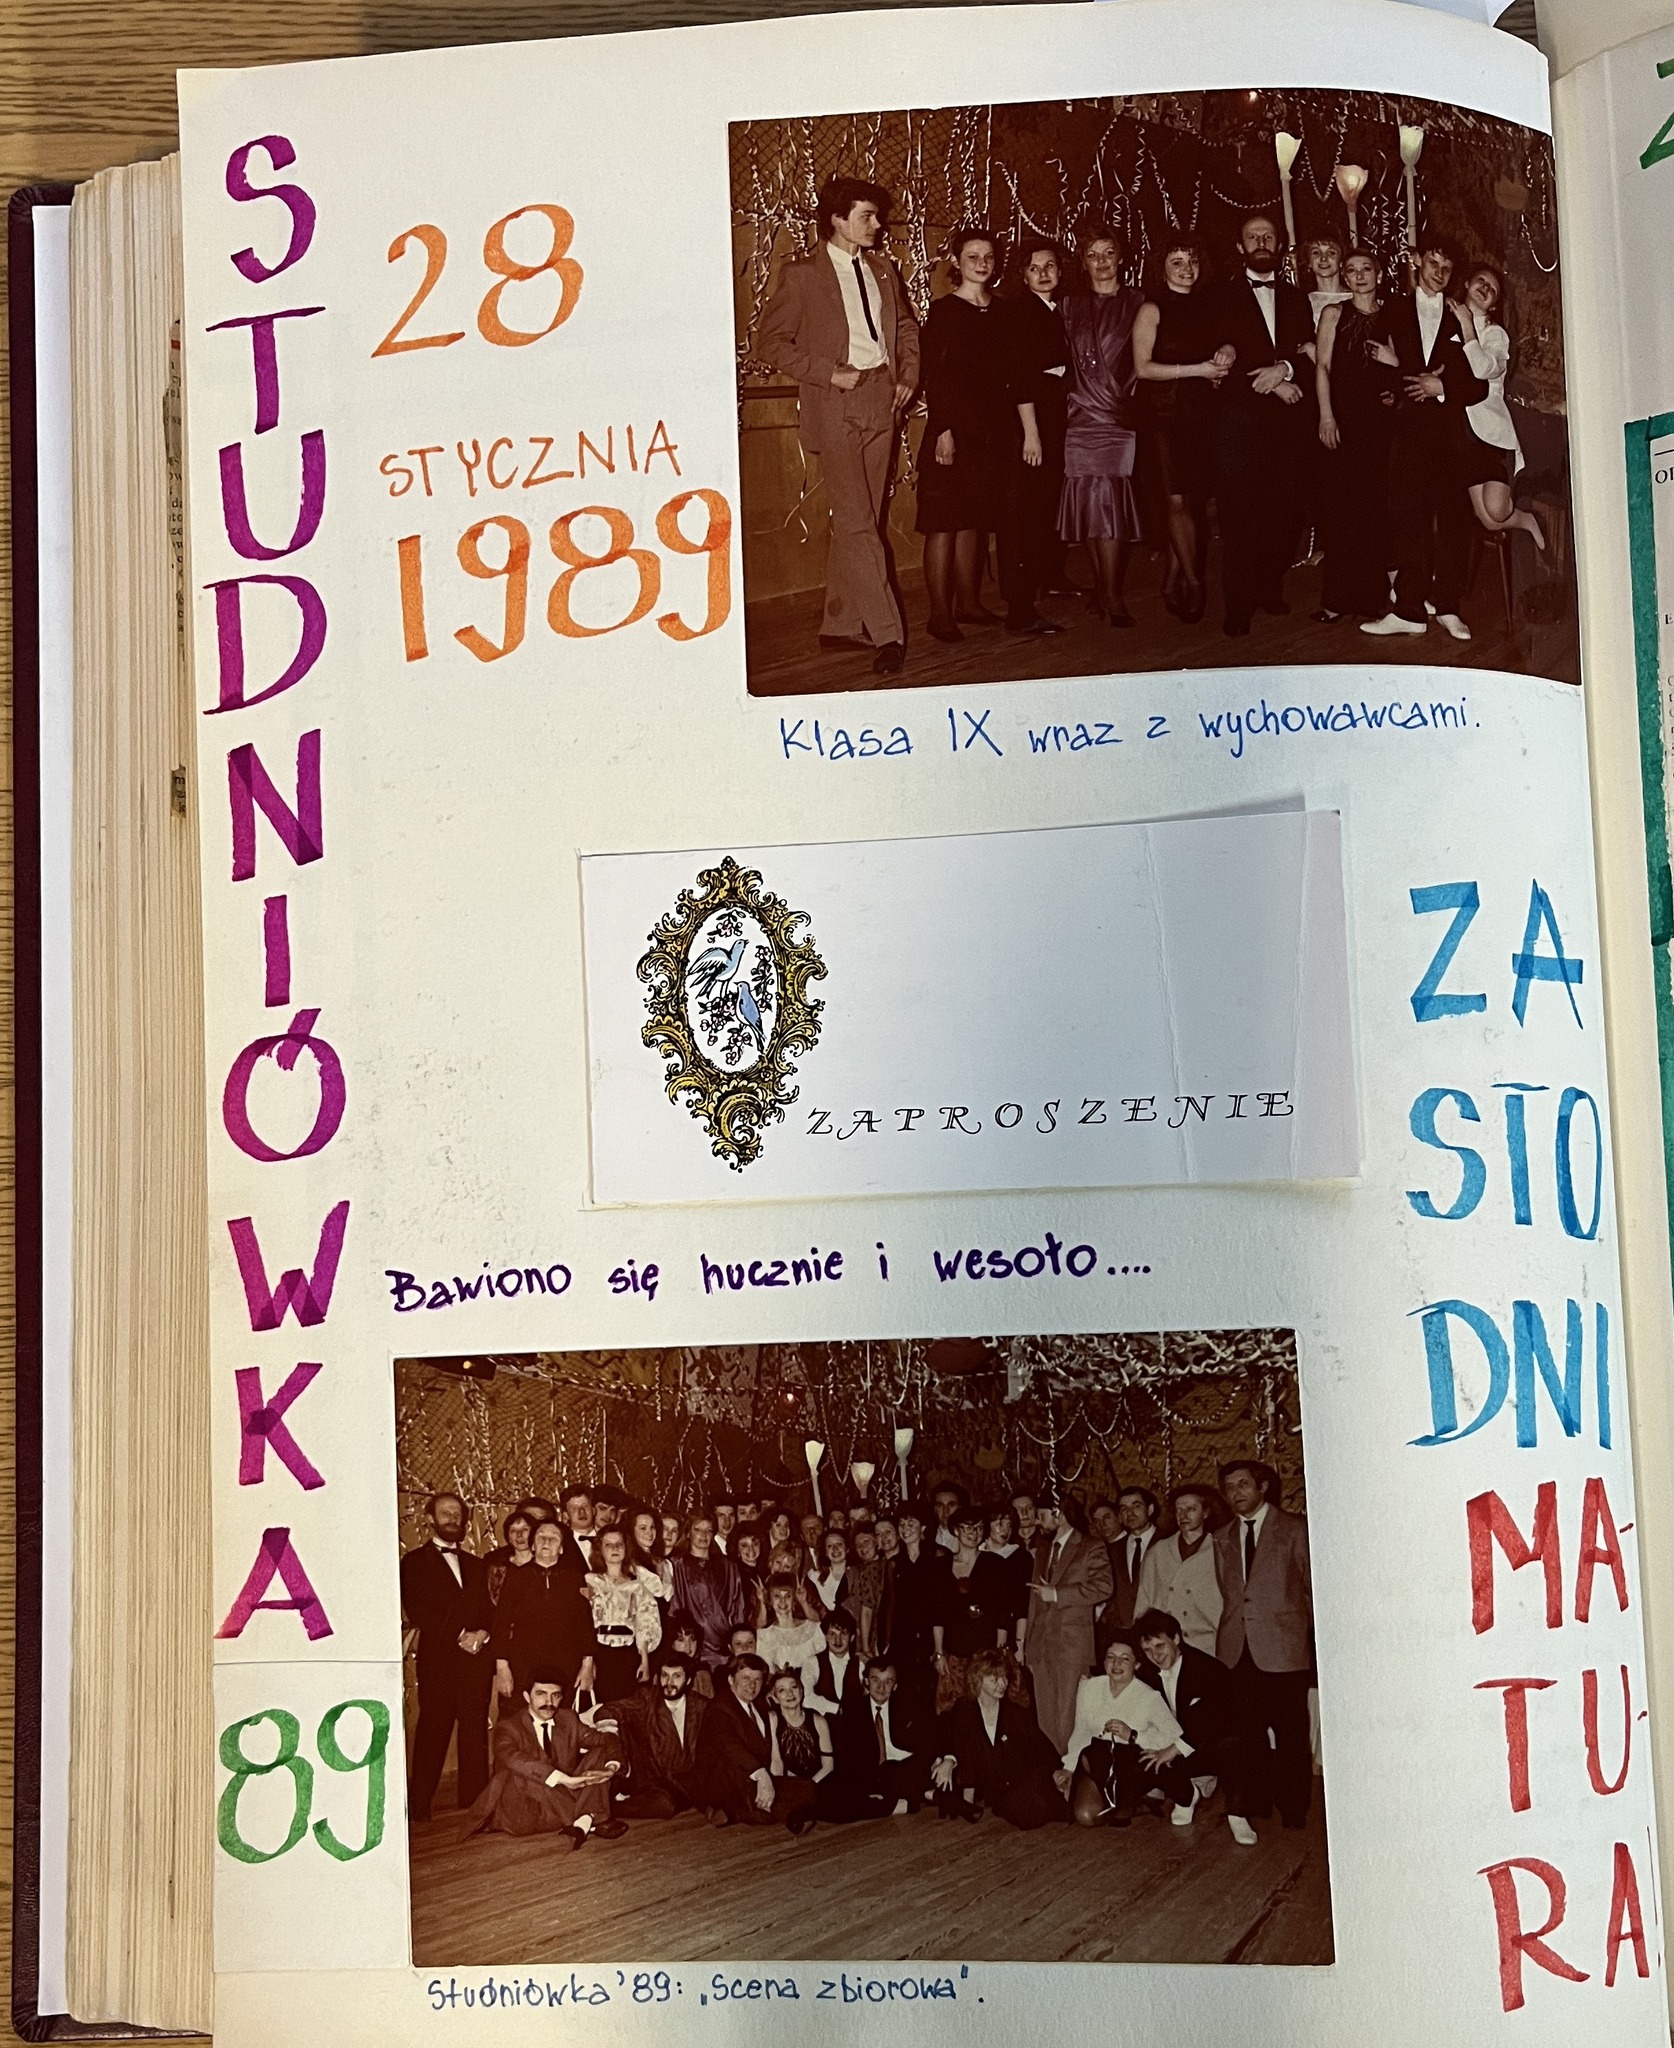 STUDNIÓWKA
89
28
STYCZNIA
1989
Klasa IX wraz z wychowawcami.
ZAPROSZENIE
Bawiono się hucznie i wesoło....
Studniówka '89: „Scena zbiorowa".
ZA
STO
DNI
MA-
TU-
RA